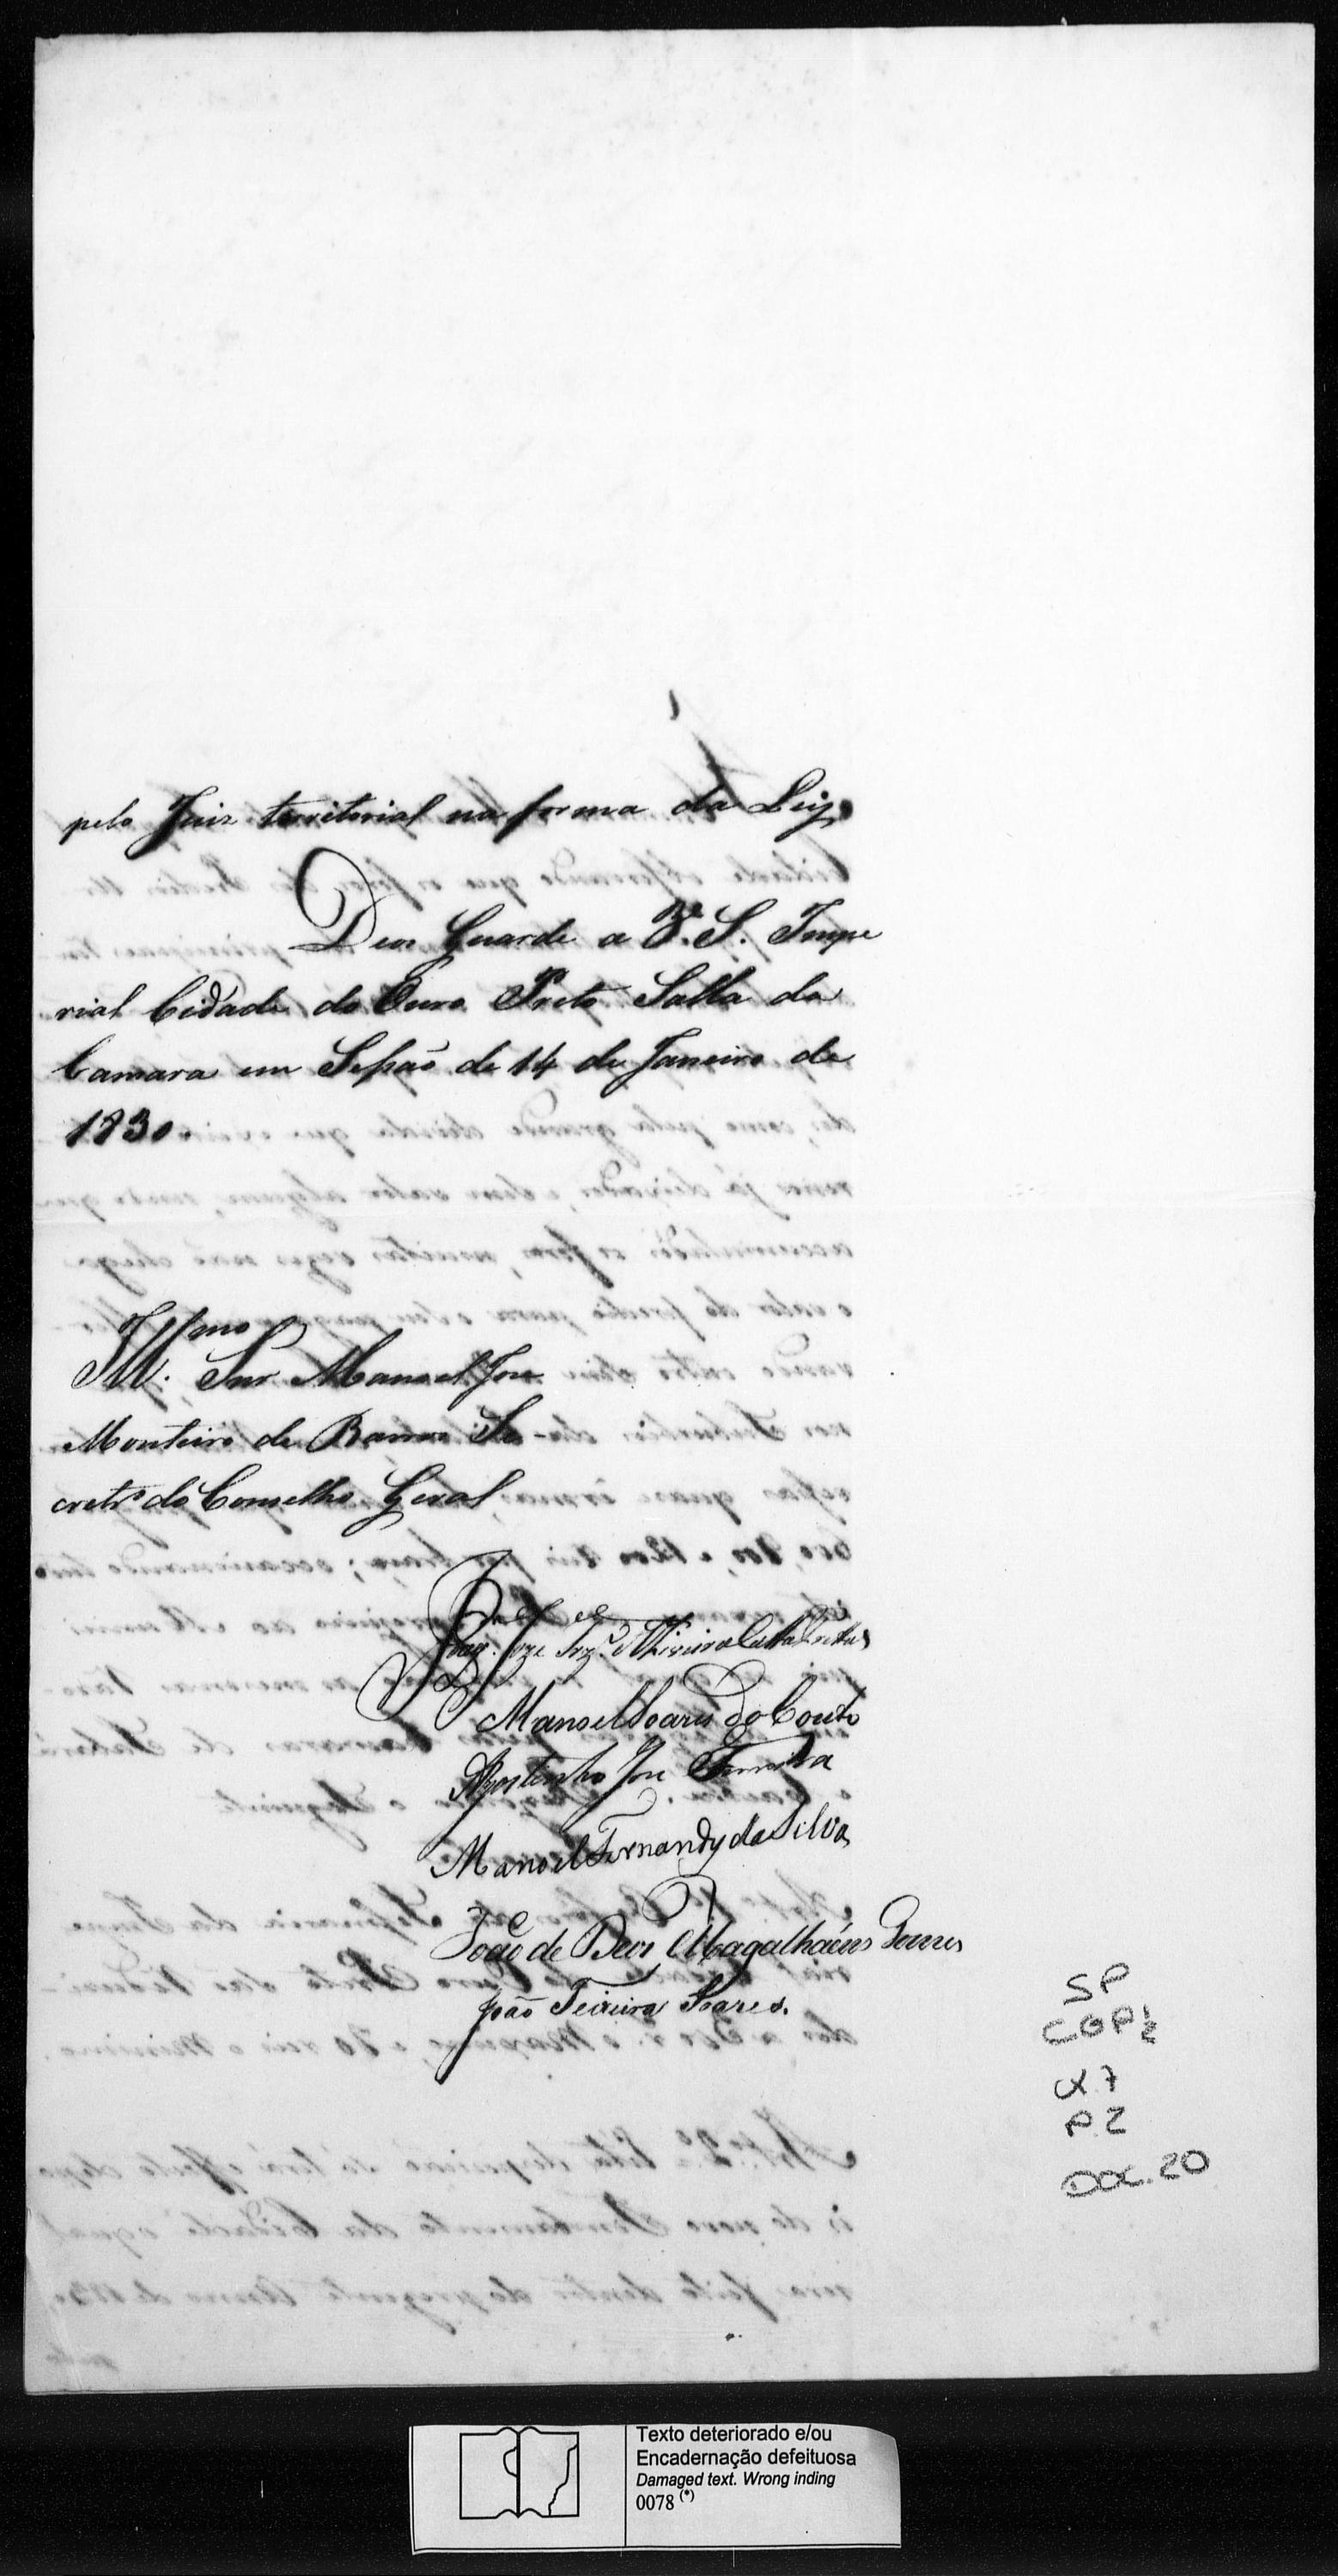 pelo Juiz territorial na forma da Ley.
Deos Guarde a V. S. Impe
rial Cidade do Ouro Preto Salla da
Camara em Sessaõ de 14 de Janeiro de
1830
Illmo. Snr Manoel Jose
Monteiro de Barros Se-
cretrº do Conselho Geral
Manoel Soares do Couto
Agostinho Jose Ferreira
Manoel Fernandes da Silva
João de Deos Magalhães Gomes
João Teixeira Soares.
SP
CGP1/2
CX. 7
P. 2
DOC. 20
Texto deteriorado e/ou
Encadernação defeituosa
Damaged text. Wrong inding
0078 (*)